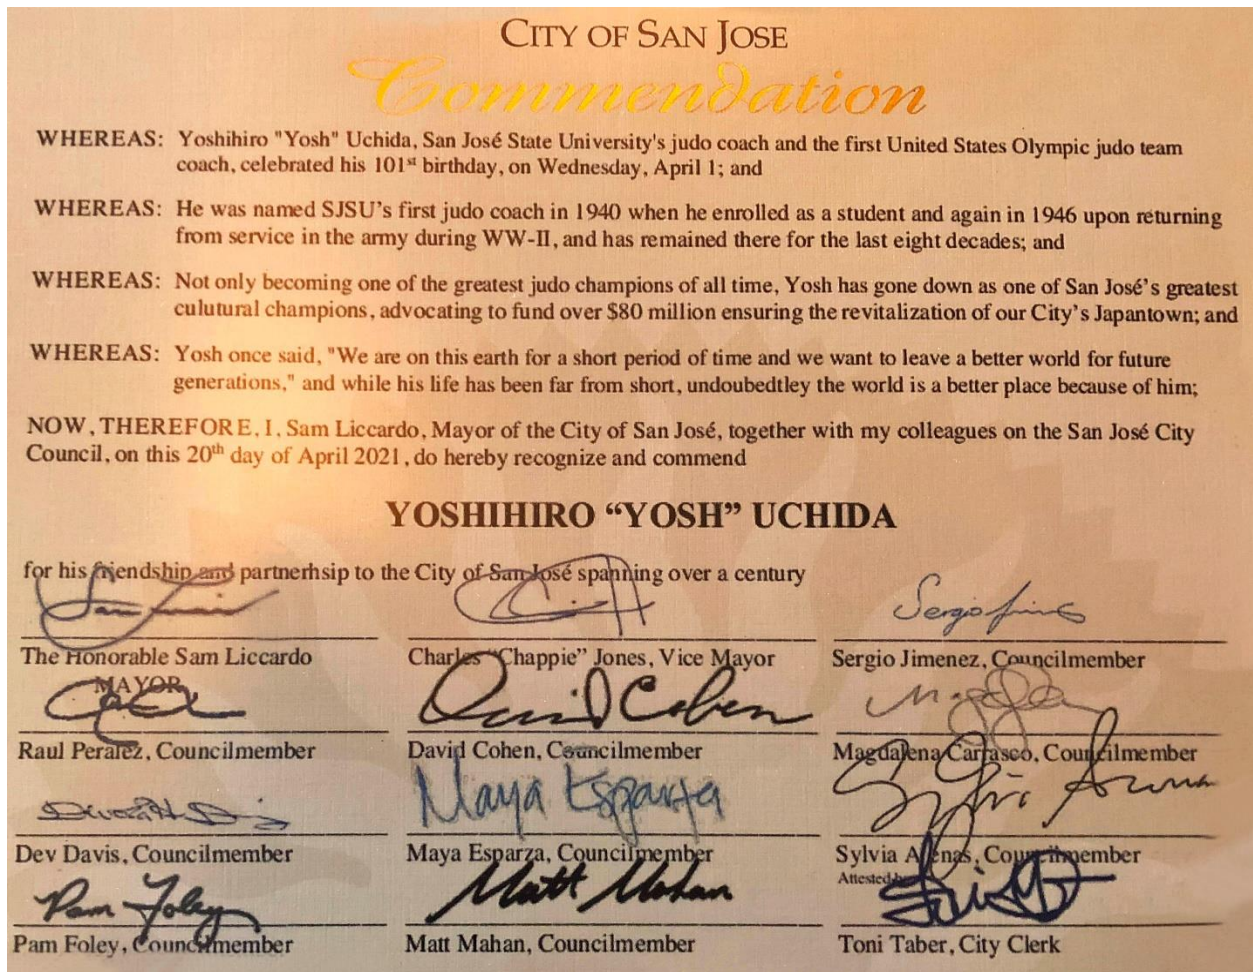 CITY OF SAN JOSE
Commendation
WHEREAS: Yoshihiro "Yosh" Uchida, San José State University's judo coach and the first United States Olympic judo team
coach, celebrated his 101st birthday, on Wednesday, April 1; and
WHEREAS: He was named SJSU's first judo coach in 1940 when he enrolled as a student and again in 1946 upon returning
from service in the army during WW-II, and has remained there for the last eight decades; and
WHEREAS: Not only becoming one of the greatest judo champions of all time, Yosh has gone down as one of San José's greatest
culutural champions, advocating to fund over $80 million ensuring the revitalization of our City's Japantown; and
WHEREAS: Yosh once said, "We are on this earth for a short period of time and we want to leave a better world for future
generations," and while his life has been far from short, undoubedtley the world is a better place because of him;
NOW, THEREFORE, I, Sam Liccardo, Mayor of the City of San José, together with my colleagues on the San José City
Council, on this 20th day of April 2021, do hereby recognize and commend
YOSHIHIRO “YOSH” UCHIDA
for his friendship and partnerhsip to the City of San José spanning over a century
Sergio
The Honorable Sam Liccardo Charles “Chappie” Jones, Vice Mayor Sergio Jimenez, Councilmember
MAYOR
David Cohen
Raul Peralez, Councilmember David Cohen, Councilmember Magdalena Carrasco, Councilmember
Maya Esparza
Dev Davis, Councilmember Maya Esparza, Councilmember Sylvia Arenas, Councilmember
Attested by
Pam Foley Matt Mahan
Pam Foley, Councilmember Matt Mahan, Councilmember Toni Taber, City Clerk